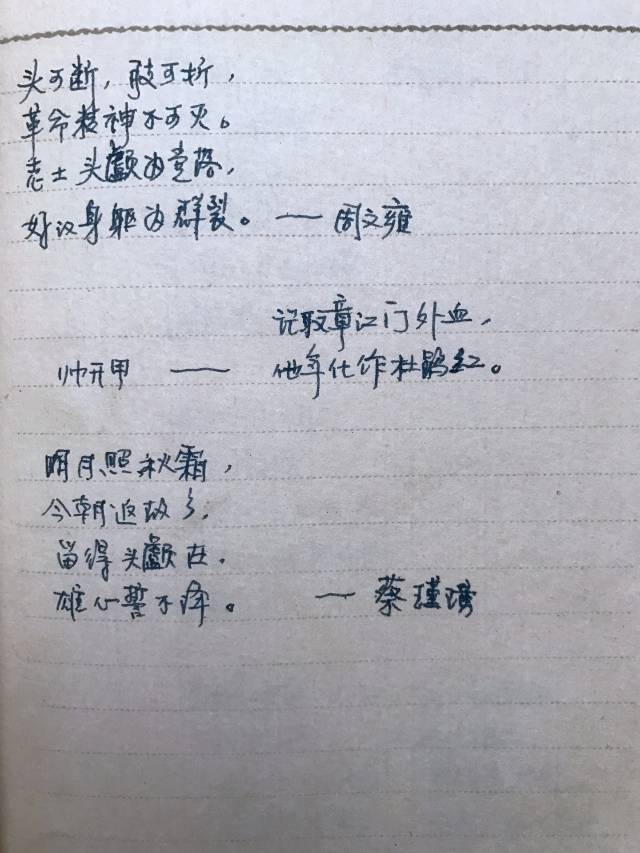 头可断，肢可折，
革命精神不可灭。
志士头颅为党落，
好汉身躯为群裂。 —— 周文雍
记取章江门外血，
帅开甲 —— 他年化作杜鹃红。
明月照秋霜，
今朝返故乡，
留得头颅在，
雄心誓不降。 —— 蔡瑾